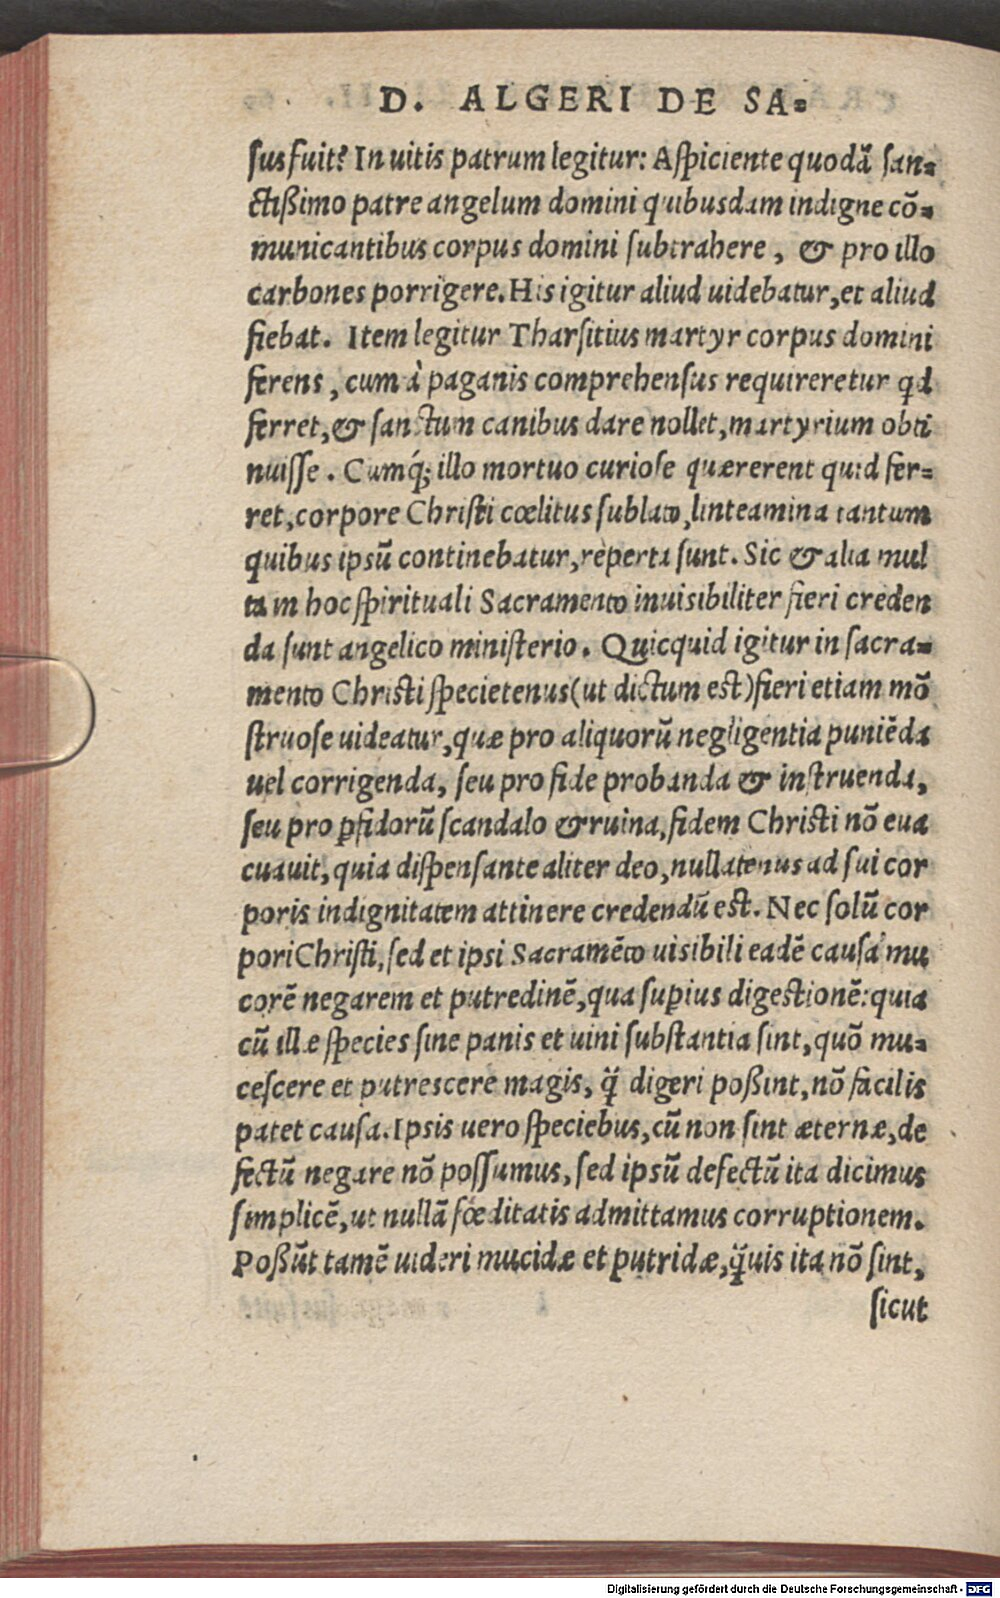 D. ALGERI DE SA-
sus fuit? In uitis patrum legitur: Aspiciente quodã san-
ctißimo patre angelum domini quibusdam indigne cõ-
municantibus corpus domini subtrahere, & pro illo
carbones porrigere. His igitur aliud uidebatur, et aliud
fiebat. Item legitur Tharsitius martyr corpus domini
ferens, cum à paganis comprehensus requireretur qd
ferret, & sanctum canibus dare nollet, martyrium obti
nuisse. Cumq́; illo mortuo curiose quærerent quid fer-
ret, corpore Christi cœlitus sublato, linteamina tantum
quibus ipsũ continebatur, reperta sunt. Sic & alia mul
ta in hoc spirituali Sacramento inuisibiliter fieri creden
da sunt angelico ministerio. Quicquid igitur in sacra-
mento Christi specietenus (ut dictum est) fieri etiam mõ
struose uideatur, quæ pro aliquorũ negligentia puniẽda
uel corrigenda, seu pro fide probanda & instruenda,
seu pro ꝑfidorũ scandalo & ruina, fidem Christi nõ eua
cuauit, quia dispensante aliter deo, nullatenus ad sui cor
poris indignitatem attinere credendũ est. Nec solũ cor
pori Christi, sed et ipsi Sacramẽto uisibili eadẽ causa mu
corẽ negarem et putredinẽ, qua supius digestionẽ: quia
cũ illæ species sine panis et uini substantia sint, quõ mu-
cescere et putrescere magis, q̃ digeri poßint, nõ facilis
patet causa. Ipsis uero speciebus, cũ non sint æternæ, de
fectũ negare nõ possumus, sed ipsũ defectũ ita dicimus
simplicẽ, ut nullã fœditatis admittamus corruptionem.
Poßũt tamẽ uideri mucidæ et putridæ, q̃uis ita nõ sint,
sicut
Digitalisierung gefördert durch die Deutsche Forschungsgemeinschaft - DFG